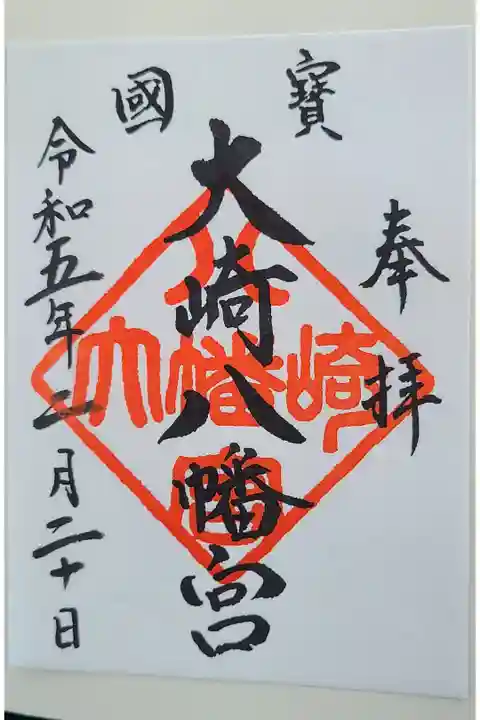 國寶
奉拝
大崎八幡宮
八
大幡崎
宮
令和五年二月二十日